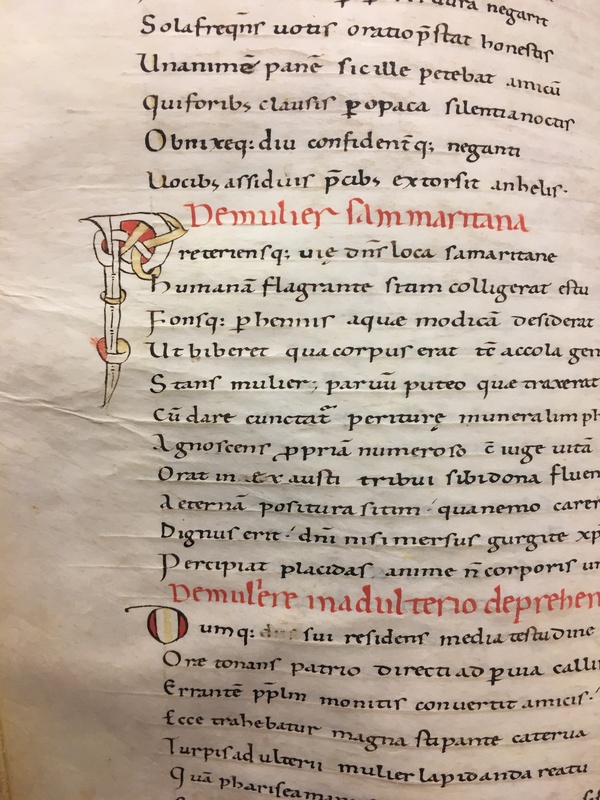 dura negarit
Sola freqn̄s uotis oratio p̄stat honestis
Unanimē panē sic ille petebat amicū
Qui foribꝫ clausis ꝑ opaca silentia noctis
Obnixeq: diu confidentq; neganti
Uocibꝫ assiduis p̄cibꝫ extorsit anhelis.
De muliere sammaritana
Preteriensq; uię dn̄s loca samaritane
humanā flagrante sitim colligerat estu
Fonsq: ꝑhennis aquæ modicā desiderat
Ut biberet qua corpus erat tc̄ accola gen
Stans mulier; paruū puteo quæ traxerat
Cū dare cunctat periturę munera limph
Agnoscens ꝓpriā numeroso c̄iuge uitā
Orat inexausti tribui sibi dona fluen
Aeternā positura sitim quanemo carer
Dignus erit dn̄i nisi mersus gurgite xp̄i
Percipiat placidas anime n̄ corporis un
De mul'ere in adulterio deprehen
Dumq: sui residens media testudine
Oræ tonans patrio directi ad ꝑuia calli
Errantē pp̄lm monitis conuertit amicis.
Ecce trahebatur magna stipante caterua
Turpis adulterii mulier lapidanda reatu
Quā phariseam